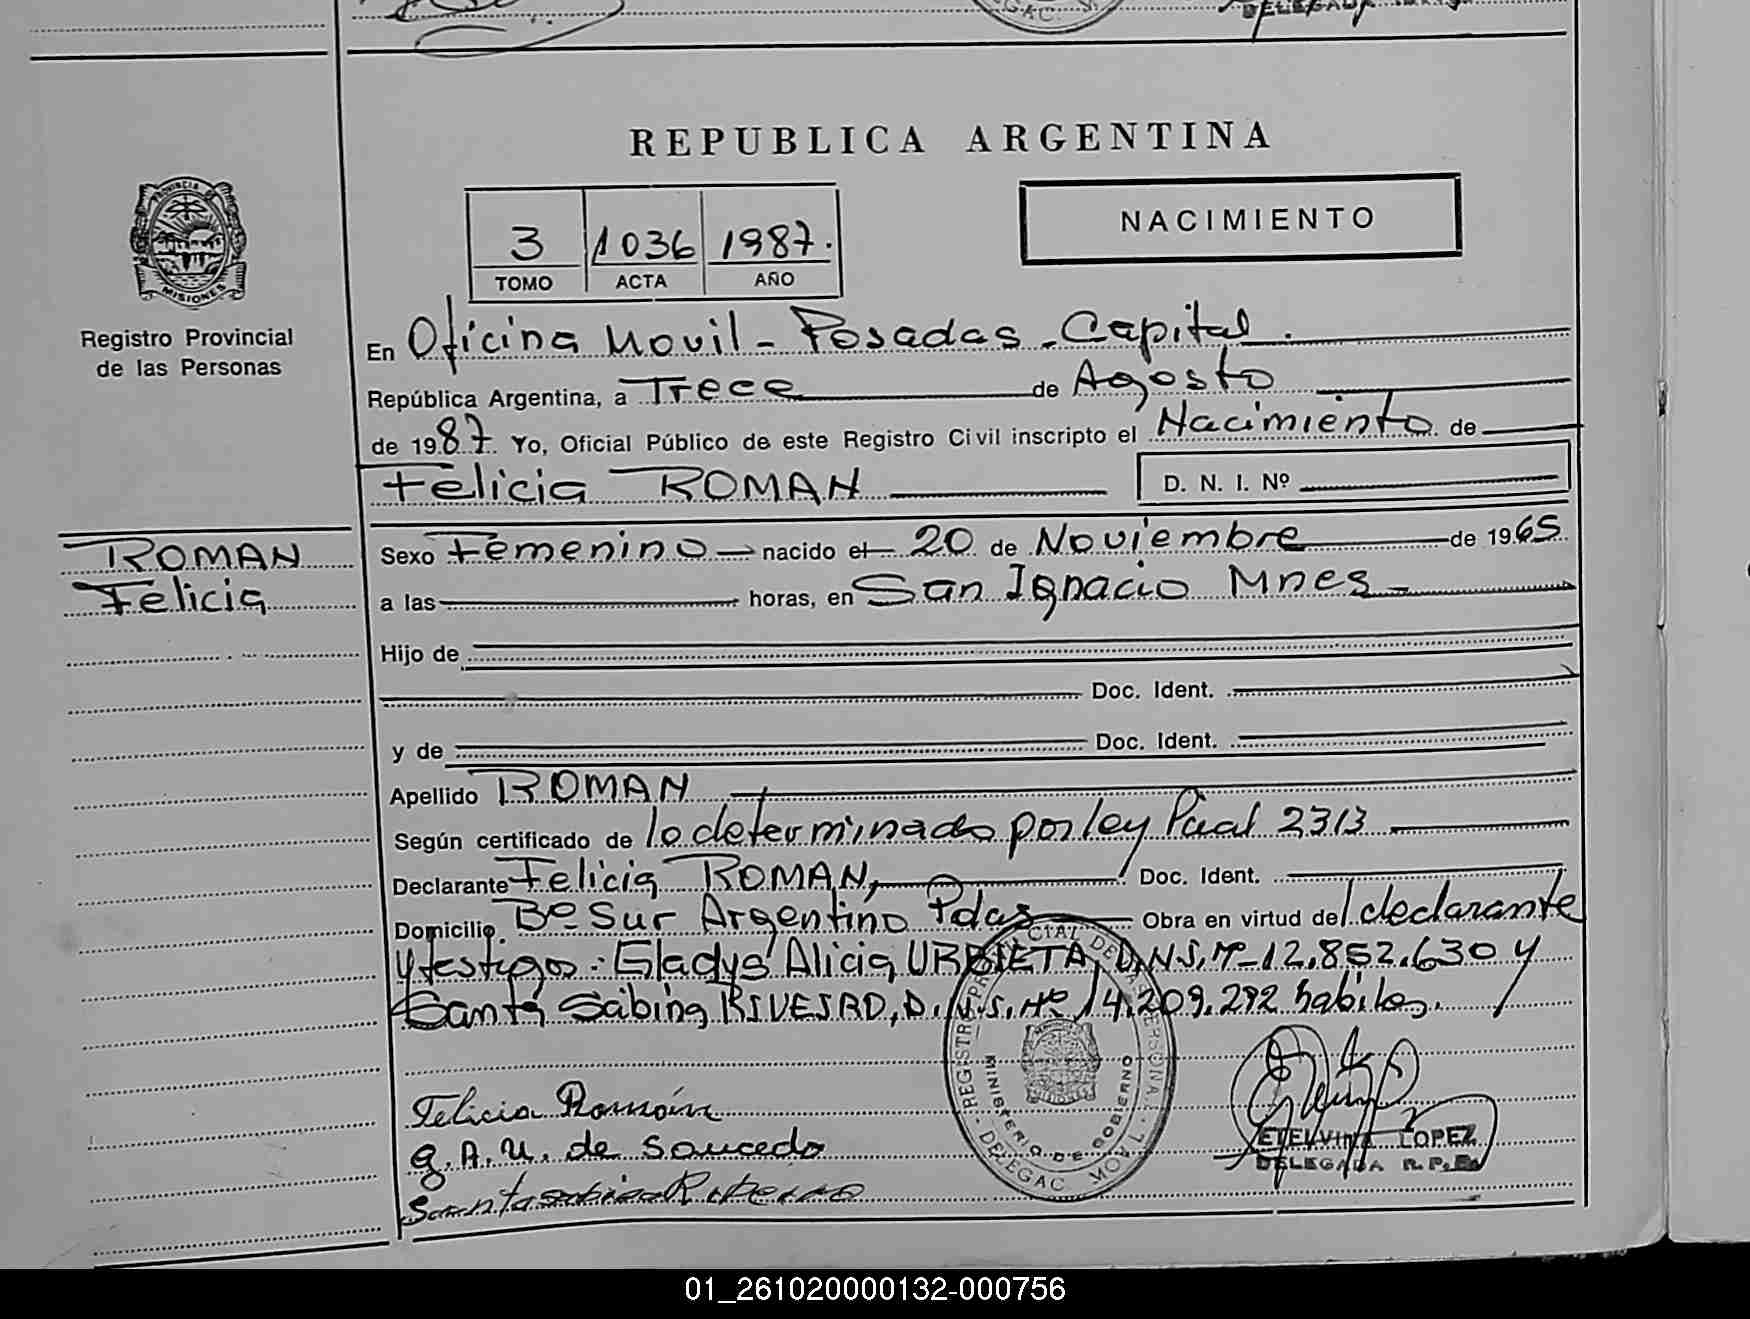 DELEGADA
REPUBLICA ARGENTINA
PROVINCIA DE
MISIONES
Registro Provincial
de las Personas
3 1036 1987.
TOMO ACTA AÑO
NACIMIENTO
En Oficina Movil - Posadas - Capital.
República Argentina, a Trece de Agosto
de 1987. Yo, Oficial Público de este Registro Civil inscripto el Nacimiento de
Felicia ROMAN D. N. I. Nº
ROMAN
Felicia
Sexo Femenino nacido el 20 de Noviembre de 1965
a las horas, en San Ignacio Mnes
Hijo de
Doc. Ident.
y de Doc. Ident.
Apellido ROMAN
Según certificado de lo determinado por ley Pcial 2313
Declarante Felicia ROMAN, Doc. Ident.
Domicilio Bº Sur Argentino Pdas Obra en virtud del declarante
y testigos: Gladys Alicia URBIETA, D.N.I. Nº 12.852.630 y
Santa Sabina RIVEIRO, D.N.I. Nº 14.209.292 habiles.
REGISTRO PROVINCIAL DE LAS PERSONAS
MINISTERIO DE GOBIERNO
DELEGAC. MOVIL
Felicia Román
g. A. U. de Saucedo
Santa sabina Ribeiro
ETELVINA LOPEZ
DELEGADA R.P.P.
01_261020000132-000756